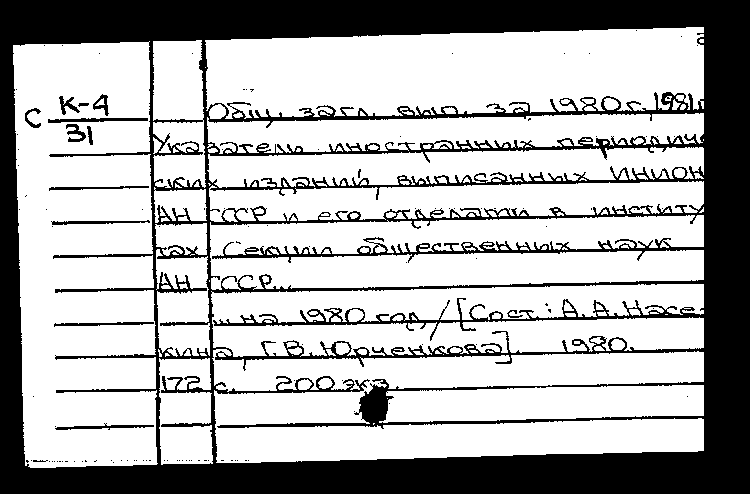 С К-4/31
Общ. загл. вып. за 1980 г., 1981 г
Указатели иностранных периодиче-
ских изданий, выписанных ИНИОН
АН СССР и его отделами в институ-
тах Секции общественных наук
АН СССР...
... на 1980 год / [Сост.: А. А. Насе-
кина, Г. В. Юрченкова]. 1980.
172 с. 200 экз.